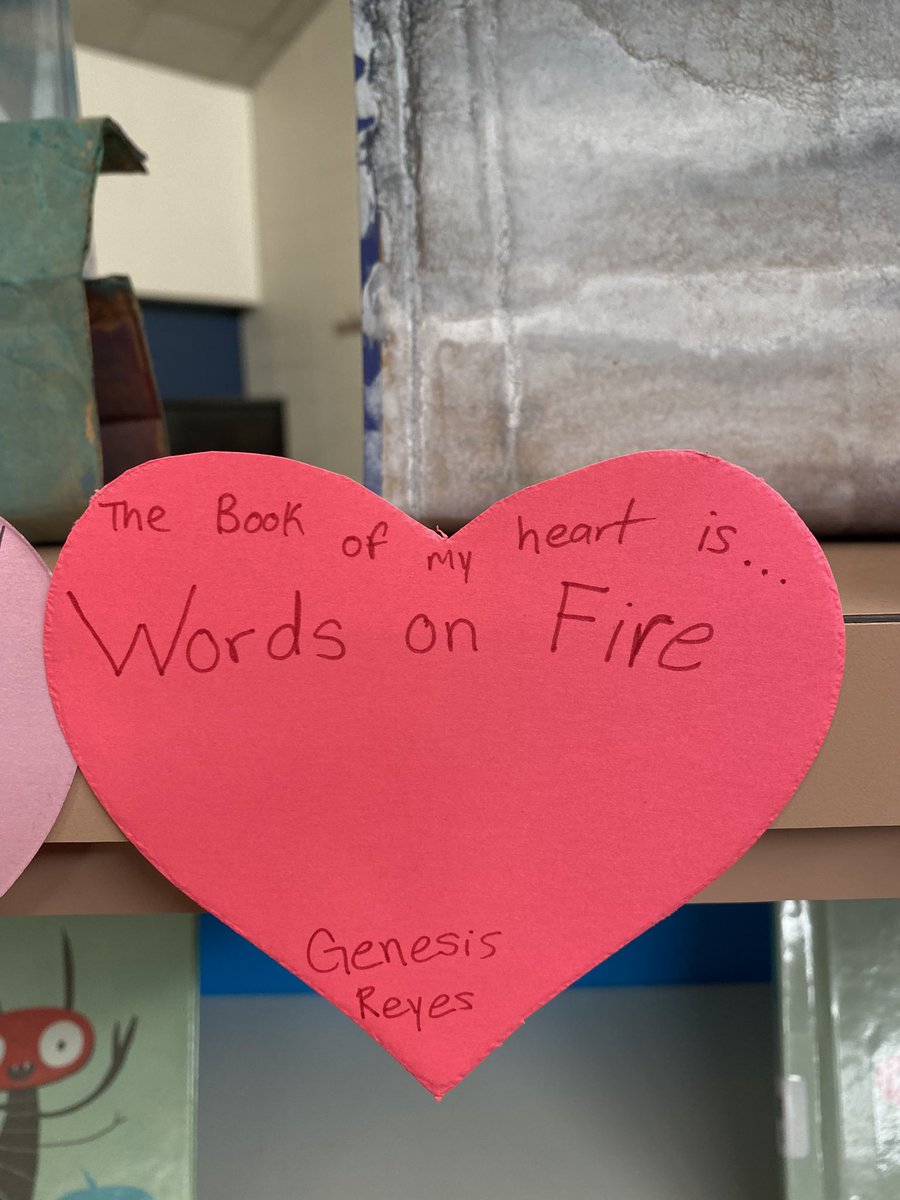 The Book of my heart is...
Words on Fire
Genesis
Reyes